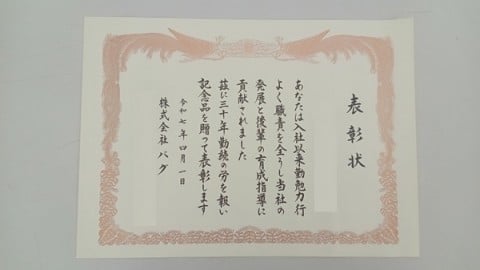 表彰状
あなたは入社以来勤勉力行
よく職責を全うし当社の
発展と後輩の育成指導に
貢献されました
茲に三十年勤続の労を報い
記念品を贈って表彰します
令和七年四月一日
株式会社パグ